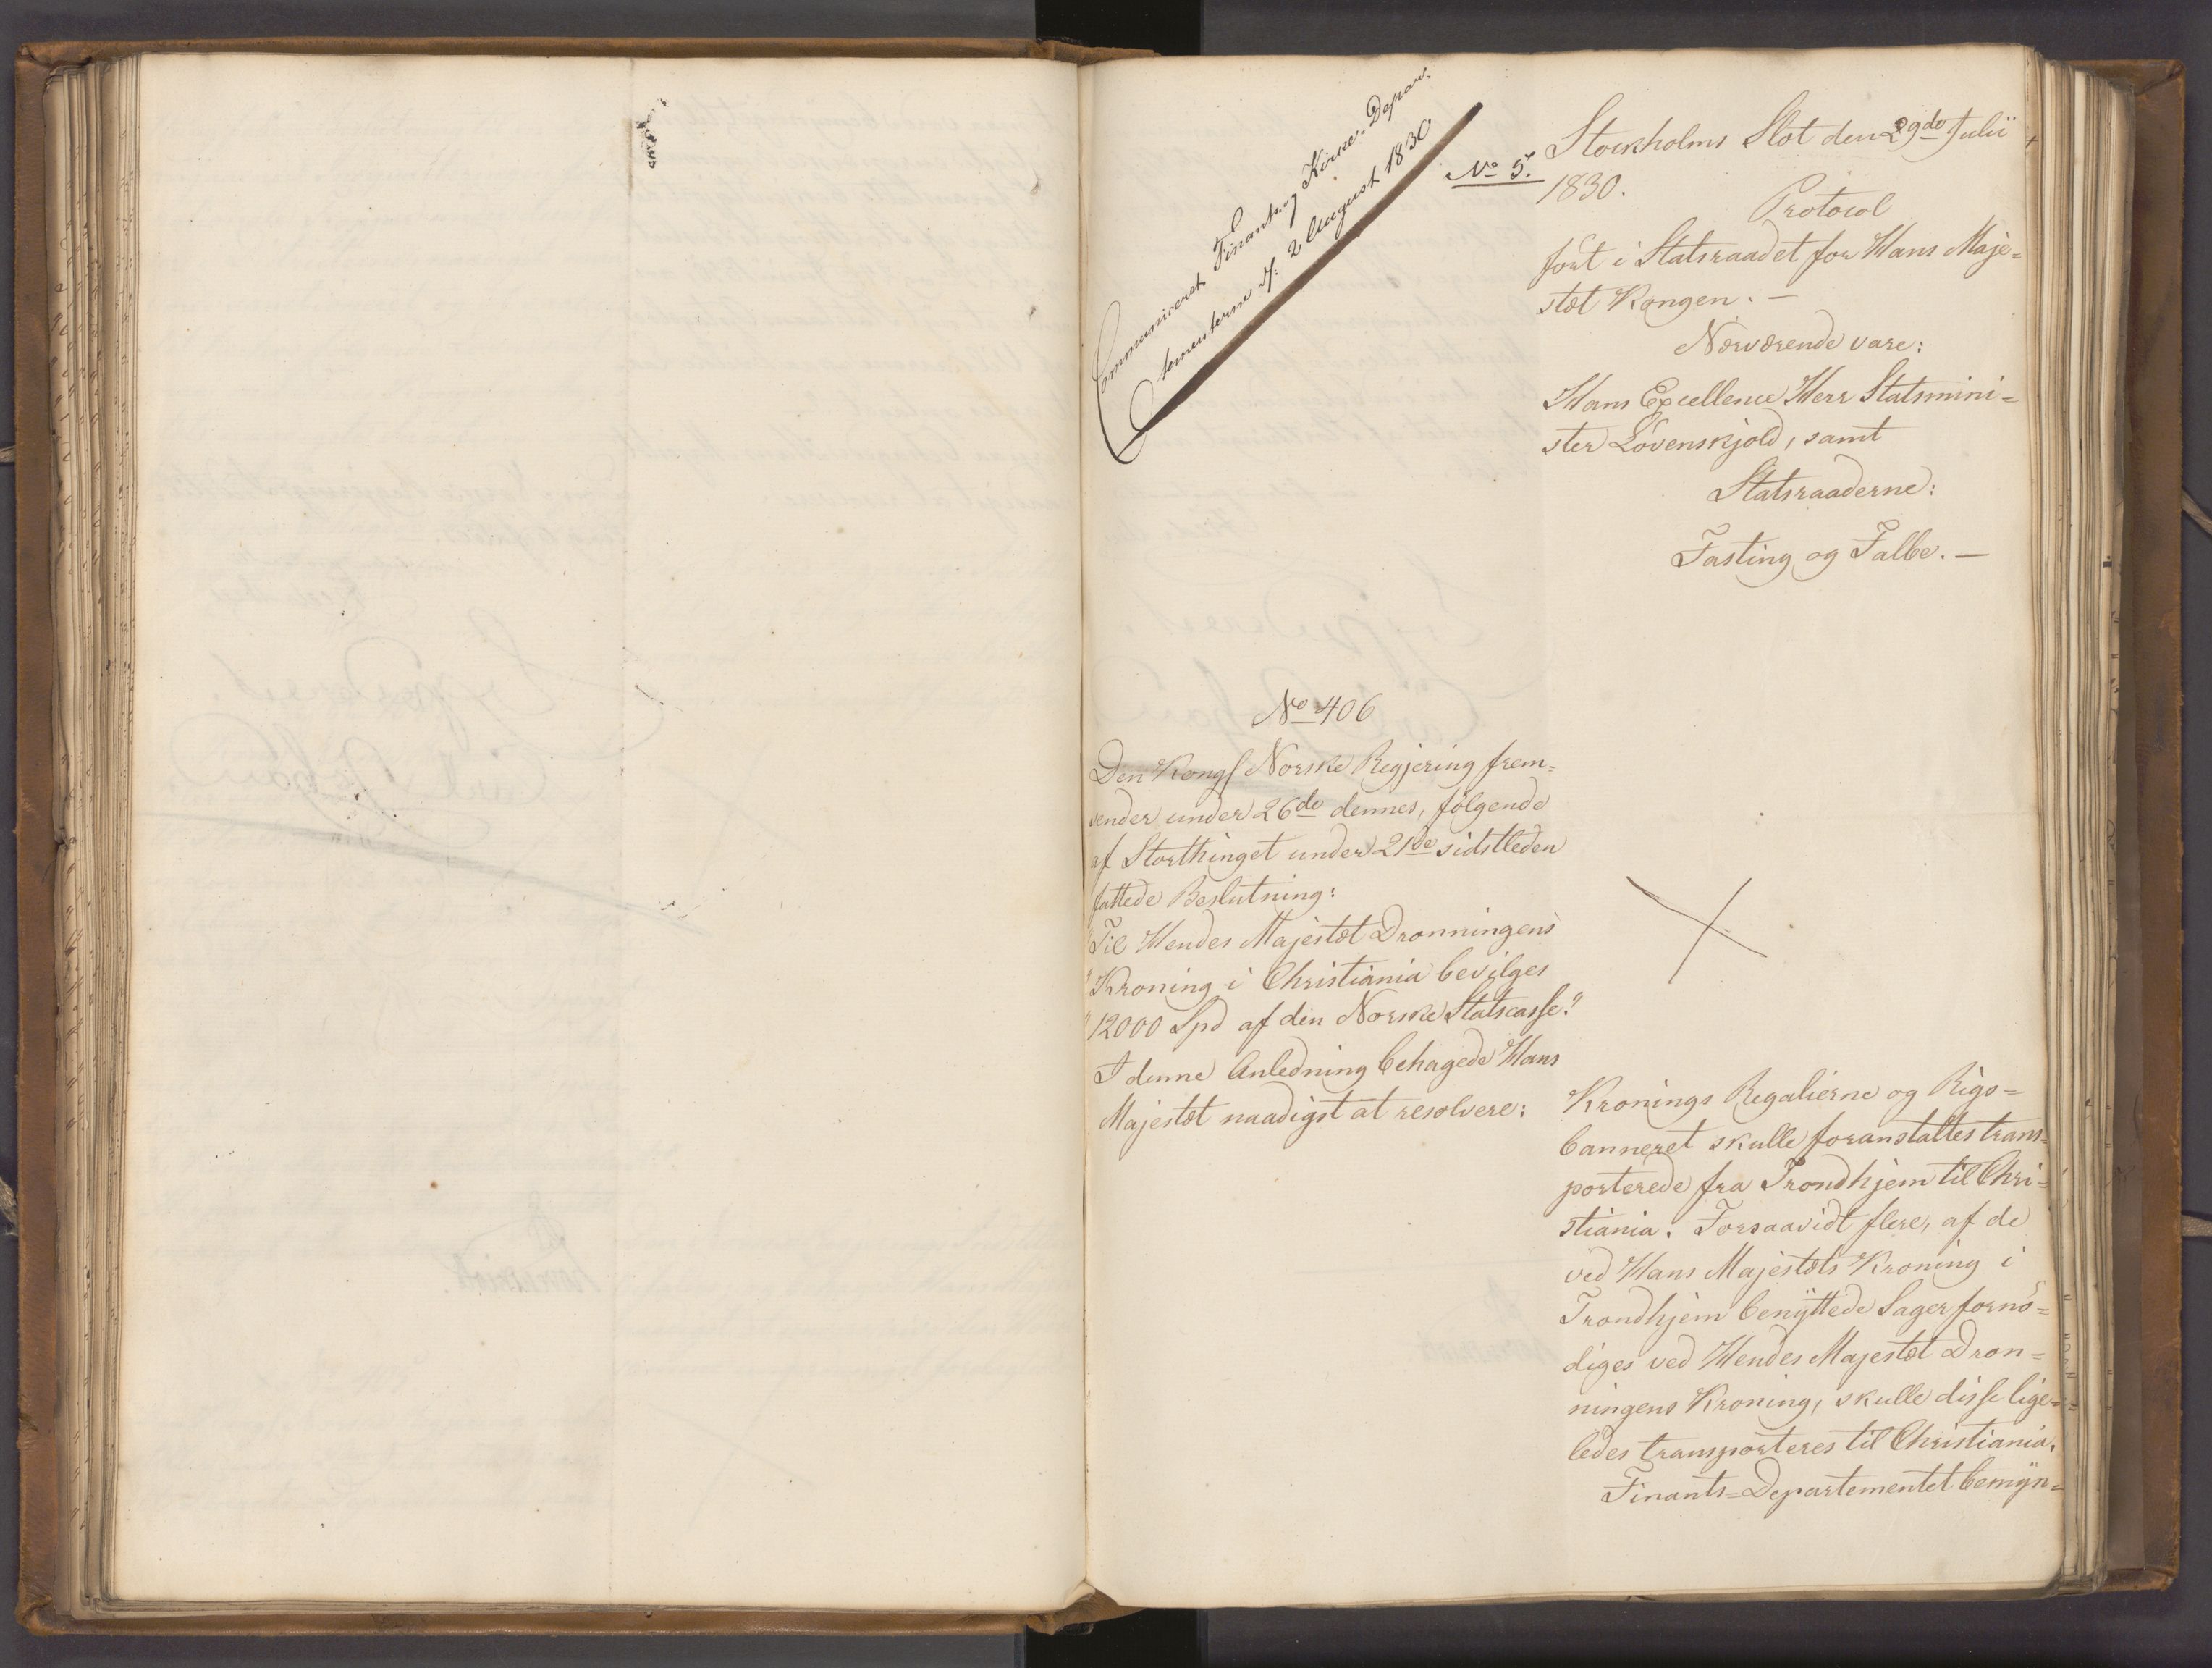 Communiceret Finants og Kirke-Depar-
tementerne d/: 2 August 1830
No 5.
Stockholms Slot den 29de Julii
1830.
Protocol
fört i Statsraadet for Hans Maje=
stæt Kongen. —
Nærværende vare:
Hans Excellence Herr Statsmini=
ster Lövenskjold, samt
Statsraaderne:
Fasting og Falbe. —
No 406
Den Kongl Norske Regjering frem=
sender under 26de dennes, fölgende
af Storthinget under 21de sidstleden
fattede Beslutning:
"Til Hendes Majestæt Dronningens
"Kroning i Christiania bevilges
"12000 Spd af den Norske Statscasse."
I denne Anledning behagede Hans
Majestæt naadigst at resolvere:
Kronings Regalierne og Rigs=
banneret skulle foranstaltes trans=
porterede fra Trondhjem til Chri=
stiania. Forsaavidt flere, af de
ved Hans Majestæts Kroning i
Trondhjem benyttede Sager fornö=
diges ved Hendes Majestæt Dron=
ningens Kroning, skulle disse lige=
ledes transporteres til Christiania.
Finants=Departementet bemyn=